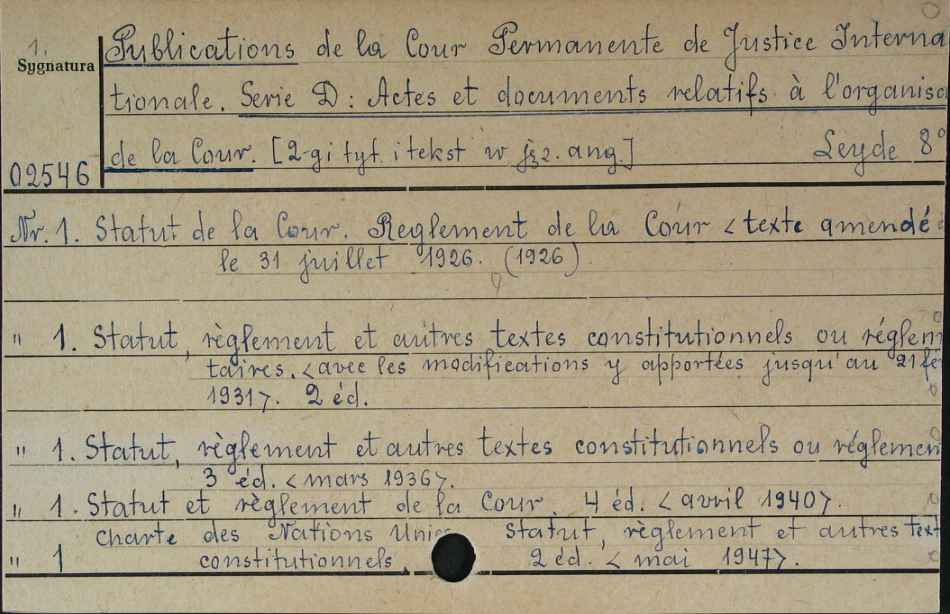 1.
Sygnatura
Publications de la Cour Permanente de Justice Interna
tionale. Serie D: Actes et documents relatifs à l'organisa
de la Cour. [2-gi tyt. i tekst w jęz. ang.] Leyde 8°
02546
Nr. 1. Statut de la Cour. Reglement de la Cour < texte amendé
le 31 juillet 1926. (1926)
" 1. Statut, règlement et autres textes constitutionnels ou réglem
taires. <avec les modifications y apportées jusqu'au 21 fé
1931>. 2 éd.
" 1. Statut, règlement et autres textes constitutionnels ou réglemen
3 éd. <mars 1936>.
" 1. Statut et règlement de la Cour. 4 éd. < avril 1940>.
Charte des Nations Unies Statut, règlement et autres text
" 1 constitutionnels. 2 éd. < mai 1947>.